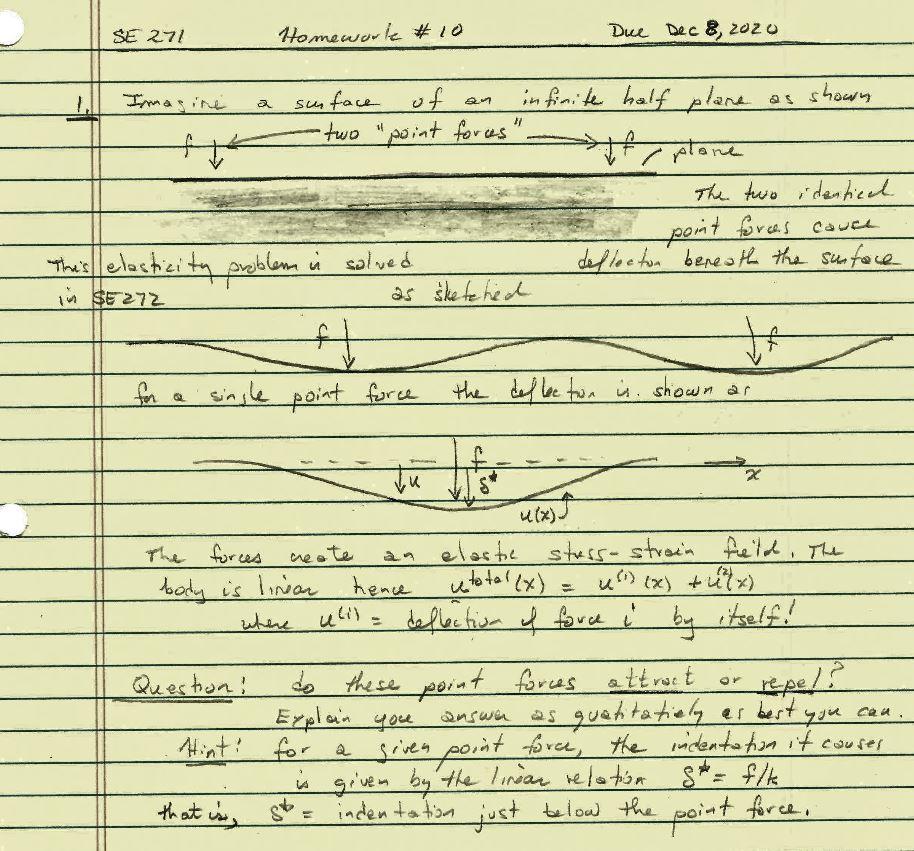 SE 271 Homework # 10 Due Dec 8, 2020
1. Imagine a surface of an infinite half plane as shown
f two "point forces" f plane
The two identical
point forces cause
This elasticity problem is solved deflection beneath the surface
in SE272 as sketched
f f
for a single point force the deflection is shown as
f x
u δ*
u(x)
The forces create an elastic stress-strain field. The
body is linear hence u^total(x) = u^(1)(x) + u^(2)(x)
where u^(i) = deflection of force i by itself!
Question! do these point forces attract or repel?
Explain you answer as quatitatiely as best you can.
Hint! for a given point force, the indentation it causes
is given by the linear relation δ* = f/k
that is, δ* = indentation just below the point force.